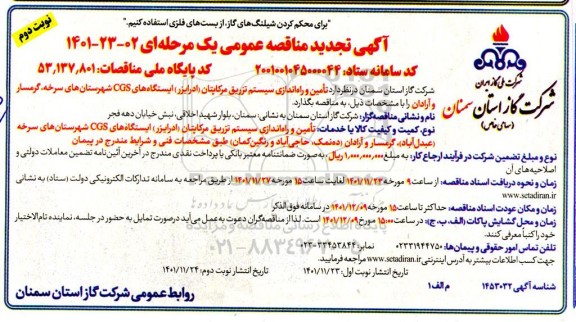 "برای محکم کردن شیلنگ‌های گاز، از بست‌های فلزی استفاده کنیم."
نوبت دوم
آگهی تجدید مناقصه عمومی یک مرحله‌ای ۰۲-۲۳-۱۴۰۱
کد سامانه ستاد: ۲۰۰۱۰۰۱۰۴۵۰۰۰۰۴۴ کد پایگاه ملی مناقصات: ۵۳,۱۳۷,۸۰۱
شرکت ملی گاز ایران
شرکت گاز استان سمنان
(سهامی خاص)
شرکت گاز استان سمنان در نظر دارد تأمین و راه‌اندازی سیستم تزریق مرکاپتان (درایرز) ایستگاه‌های CGS شهرستان‌های سرخه، گرمسار
و آرادان را با مشخصات ذیل، به مناقصه بگذارد.
نام و نشانی مناقصه‌گزار: شرکت گاز استان سمنان به نشانی: سمنان، بلوار شهید اخلاقی، نبش خیابان دهه فجر
نوع، کمیت و کیفیت کالا یا خدمات: تأمین و راه‌اندازی سیستم تزریق مرکاپتان (درایرز) ایستگاه‌های CGS شهرستان‌های سرخه
(عبدل‌آباد)، گرمسار و آرادان (ده‌نمک، حاجی‌آباد و رنگین‌کمان) طبق مشخصات فنی و شرایط مندرج در پیمان
نوع و مبلغ تضمین شرکت در فرآیند ارجاع کار: به مبلغ ۱,۰۰۰,۰۰۰,۰۰۰ ریال، به‌صورت ضمانتنامه معتبر بانکی یا پرداخت نقدی مندرج در آخرین آئین‌نامه تضمین معاملات دولتی و
اصلاحیه‌های آن
زمان و نحوه دریافت اسناد مناقصه: از ساعت ۹ مورخه ۱۴۰۱/۱۱/۲۳ لغایت ساعت ۱۵ مورخه ۱۴۰۱/۱۱/۲۷ از طریق مراجعه به سامانه تدارکات الکترونیکی دولت (ستاد) به نشانی
www.setadiran.ir
زمان و مکان عودت اسناد مناقصه: حداکثر تا ساعت ۱۵ مورخه ۱۴۰۱/۱۲/۰۹ در سامانه فوق الذکر
زمان و محل گشایش پاکات (الف، ب، ج): در ساعت ۱۵:۰۰ مورخ ۱۴۰۱/۱۲/۰۹ است. لذا از مناقصه‌گران دعوت به عمل می‌آید در صورت تمایل به حضور در جلسه، نماینده تام‌الاختیار
خود را کتباً معرفی کنند.
تلفن تماس امور حقوقی و پیمان‌ها: ۰۲۳۳۱۹۴۴۷۵۰ نمابر: ۳۳۴۵۲۸۴۴-۰۲۳
جهت کسب اطلاعات بیشتر به آدرس اینترنتی www.setadiran.ir مراجعه فرمایید.
تاریخ انتشار نوبت اول: ۱۴۰۱/۱۱/۲۳ تاریخ انتشار نوبت دوم: ۱۴۰۱/۱۱/۲۴
شناسه آگهی ۱۴۵۳۰۳۲ م الف ۱
روابط عمومی شرکت گاز استان سمنان